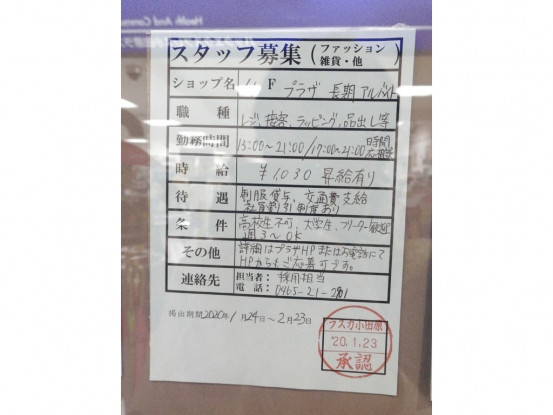 Health And
スタッフ募集(ファッション雑貨・他)
ショップ名 4F プラザ 長期 アルバイト
職種 レジ、接客、ラッピング、品出し等
勤務時間 13:00~21:00/17:00~21:00 時間応相談
時給 ¥1,030 昇給有り
待遇 制服貸与、交通費支給
社員割引制度あり
条件 高校生不可、大学生、フリーター歓迎
週3~OK
その他 詳細はプラザHPまたはお電話にて
HPからもご応募可です。
連絡先 担当者:採用担当
電話:0465-21-
掲出期間2020年1月24日~2月23日
ラスカ小田原
'20.1.23
承認